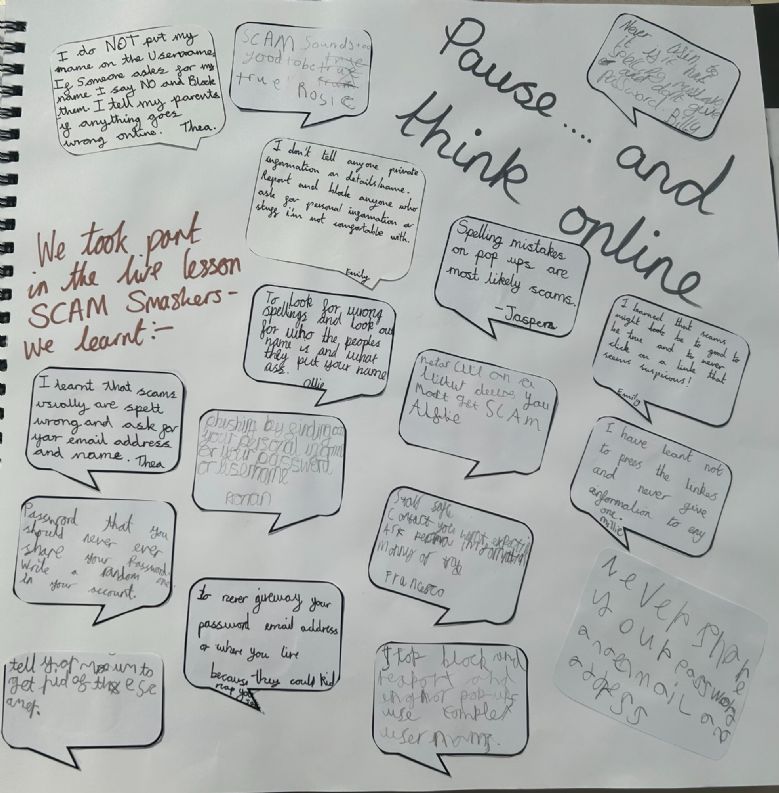 I do NOT put my
name on the Username
If Someone asks for my
name I say NO and Block
them I tell my parents
if anything goes
wrong online. Thea.
SCAM Sounds too
good to be true
true! Rosie
Pause.... and
think online
Never
it is
password
I don't tell anyone private
information or details/name.
Report and block anyone who
ask for personal information or
stuff i'm not comfortable with.
Emily
We took part
in the live lesson
SCAM Smashers-
we learnt:-
Spelling mistakes
on pop ups are
most likely scams.
-Jaspern
To look for wrong
spellings and look out
for who the peoples
name is and what
they put your name
ass.
Ollie
I learned that scams
might look be to good to
be true and to never
click on a link that
seems suspicious!
Emily
I learnt that scams
usually are spelt
wrong and ask for
your email address
and name. Thea
phishing by
your personal
or your password
or username
Ronan
on a
you
get SCAM
Alfie
I have leant not
to press the linkes
and never give
information to any
one. Millie
Password that you
should never ever
share your Password.
Write a random one
in your account.
Stay safe
Contact you
Ask
Money or
Francesco
to never giveaway your
password email address
or where you live
because they could kid
nap you
Never share
your password
and email and
adress
tell your mum to
get rid of
Stop block and
reaport and
pop-ups
use complex
username.